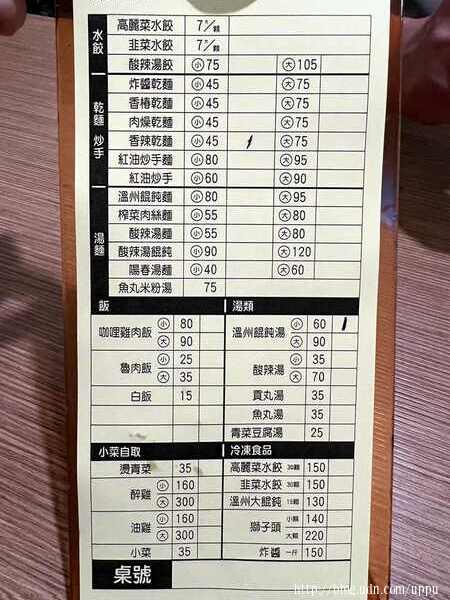 水餃
高麗菜水餃 7元/顆
韭菜水餃 7元/顆
酸辣湯餃 小 75 大 105
乾麵 炒手
炸醬乾麵 小 45 大 75
香椿乾麵 小 45 大 75
肉燥乾麵 小 45 大 75
香辣乾麵 小 45 大 75
紅油炒手麵 小 80 大 95
紅油炒手 小 60 大 90
湯麵
溫州餛飩麵 小 80 大 95
榨菜肉絲麵 小 55 大 80
酸辣湯麵 小 55 大 80
酸辣湯餛飩 小 90 大 120
陽春湯麵 小 40 大 60
魚丸米粉湯 75
飯
咖哩雞肉飯 小 80
大 90
魯肉飯 小 25
大 35
白飯 15
湯類
溫州餛飩湯 小 60
大 90
酸辣湯 小 35
大 70
貢丸湯 35
魚丸湯 35
青菜豆腐湯 25
小菜自取
燙青菜 35
醉雞 小 160
大 300
油雞 小 160
大 300
小菜 35
冷凍食品
高麗菜水餃 30顆 150
韭菜水餃 30顆 150
溫州大餛飩 15顆 130
獅子頭 小顆 140
大顆 220
炸醬 一斤 150
桌號
http://blog.udn.com/uppu